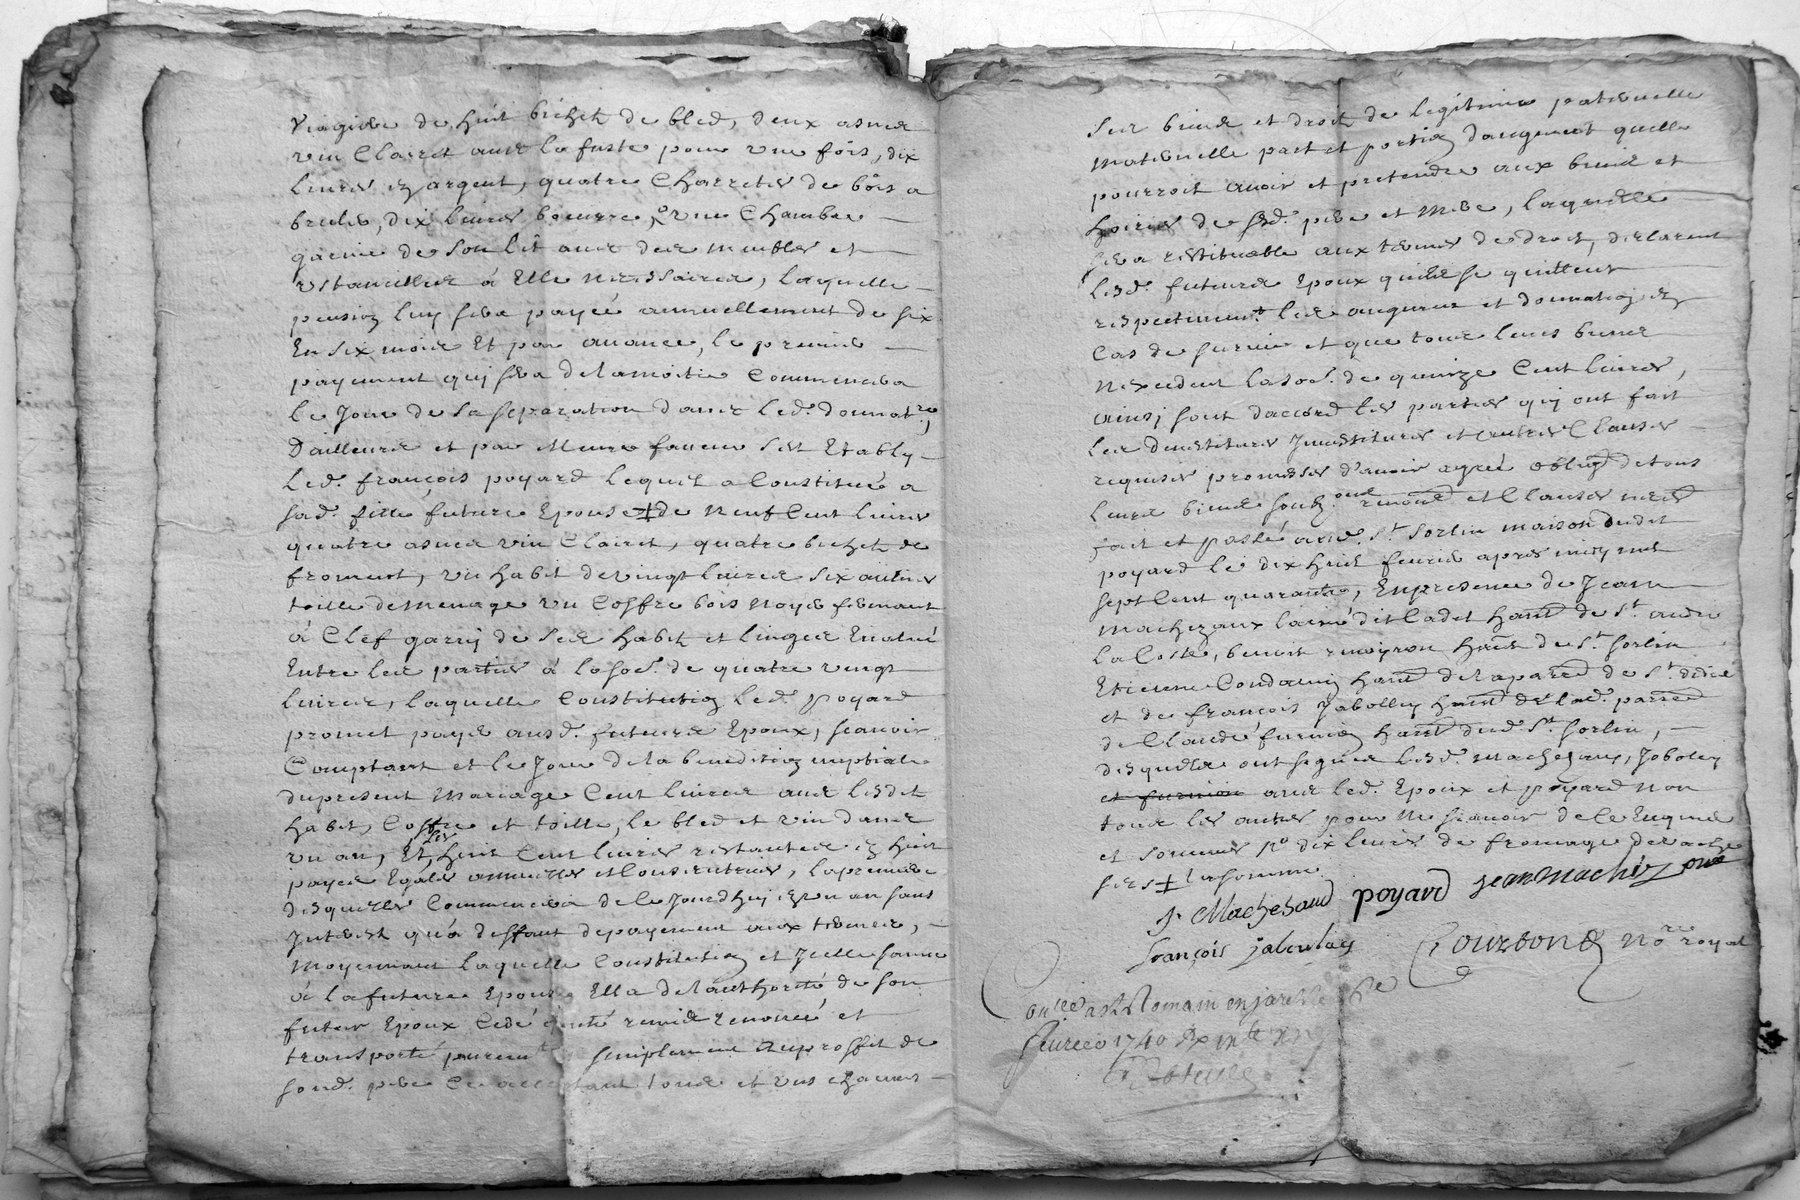 Viagere de huit bichets de bled, deux asnees
vin Clairet avec la fuste pour une fois, dix
Livres en argent, quatre Charretes de bois a
bruler, dix livres beurre, & une Chambre
garnie de son lit avec des meubles et
ustancilles à Elle necessaires, laquelle
pension luy sera payée annuellement de six
En six mois Et par avance, le premier
payement qui sera de la moitié Commencera
le Jour de sa separation d'avec led. donnat.re,
D'ailleurs et par Meme faveur s'est Etably
Led. françois poyard Lequel a Constitué a
sad. fille future Epouse de Neuf Cent livres
quatre asnees vin Clairet, quatre bichets de
froment, un habit de vingt livres six aulnes
toille de menage un Coffre bois Noyer fermant
à Clef garny de ses habits et linges Evalué
Entre les parties à la so.e de quatre vingt
livres, laquelle Constitution led. poyard
promet payer ausd. futurs Epoux, scavoir
Comptant et le Jour de la benediction nuptiale
du present Mariage Cent livres avec lesdits
habits, Coffre et toille, le bled et vin dans
un an, Et les huit Cent livres restantes en huit
payes Egales annuelles et Consecutives, la premiere
desquelles Commencera de ce Jourdhuy en un an sans
Interest qu'a deffaut de payement aux termes,
Moyennant laquelle Constitution et Icelle sauve
à la future Epouse Ella de l'authorité de son
futur Epoux Cedé quitté remis renoncé et
transporté purement simplement au proffit de
sond. pere tous et uns chacuns
ses biens et droits de legitime paternelle
Maternelle part et portion d'augment quelle
pourroit avoir et pretendre aux biens et
hoiries de sesd. pere et Mere, laquelle
sera restituable aux termes de droit, declarent
Lesd. futurs Epoux quils se quittent
respectivem.t les augment et donnation en
Cas de survie et que tous leurs biens
N'excedent la so.e de quinze Cent livres,
ainsi sont d'accord les parties qui ont fait
Les devestitures Investitures et autres Clauses
requises promesses d'avoir agréé oblig.on de tous
Leurs biens et Clauses
fait et passé aud. S.t Sorlin maison dudit
poyard le dix huit fevrier apres midy mil
sept Cent quarante, En presence de Jean
Machezaux laisné dit Cadet ha.nt de S.t
La Coste, benoit ha.nt de S.t Sorlin
Etienne Condamin ha.nt de la parr.e de S.t didier
et de françois Jaboulley ha.nt de lad. parr.e
de Claude furnion ha.nt dud. S.t Sorlin,
desquels ont signés Lesd. Machezaux, Jaboley
et furnion avec led. Epoux et poyard Non
tous les autres pour Ne scavoir de ce Enquis
et sommés
J. Machesaud poyard jean machizaux
françois jaboulay Courbon No.re royal
Con.lé a St Romain en jarest le
fevrier 1740